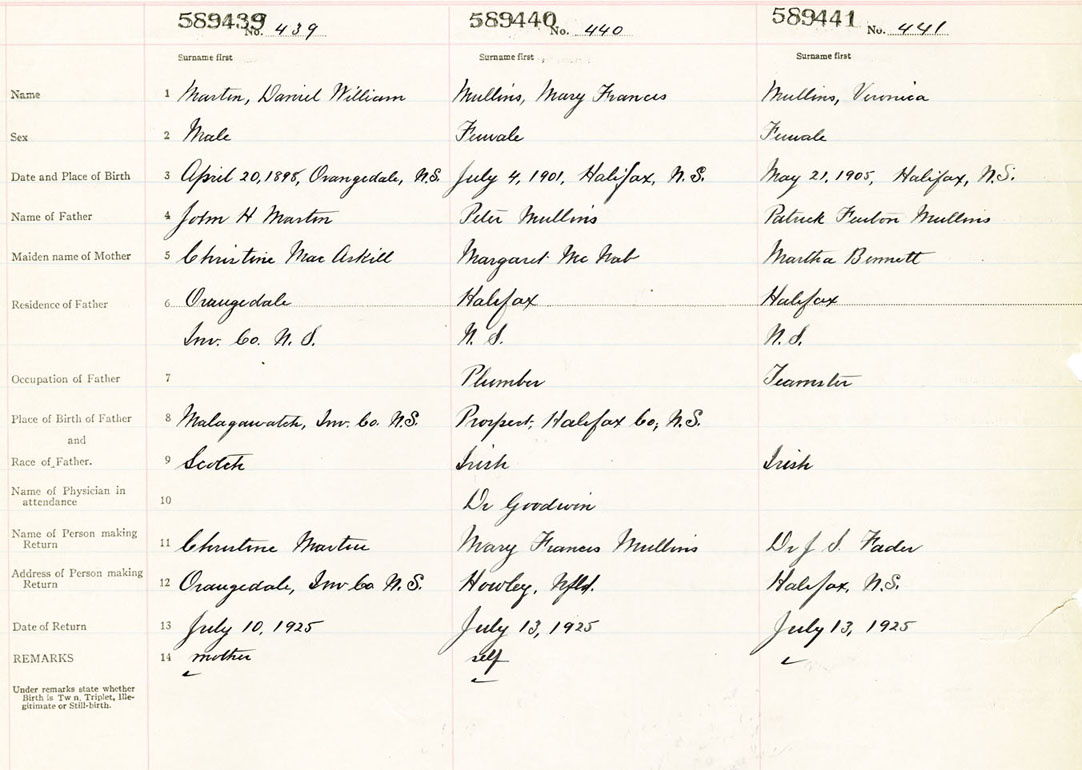 589439 No. 439 589440 No. 440 589441 No. 441
Surname first Surname first Surname first
Name 1 Martin, Daniel William Mullins, Mary Frances Mullins, Veronica
Sex 2 Male Female Female
Date and Place of Birth 3 April 20, 1898, Orangedale, N.S. July 4, 1901, Halifax, N.S. May 21, 1905, Halifax, N.S.
Name of Father 4 John H Martin Peter Mullins Patrick Fenton Mullins
Maiden name of Mother 5 Christine Mac Askill Margaret Mc Nab Martha Bennett
Residence of Father 6 Orangedale Halifax Halifax
Inv. Co. N.S. N.S. N.S.
Occupation of Father 7 Plumber Teamster
Place of Birth of Father 8 Malagawatch, Inv. Co. N.S. Prospect, Halifax Co, N.S.
and
Race of Father. 9 Scotch Irish Irish
Name of Physician in
attendance 10 Dr Goodwin
Name of Person making
Return 11 Christine Martin Mary Frances Mullins Dr J. S. Fader
Address of Person making
Return 12 Orangedale, Inv. Co N.S. Howley, Nfld. Halifax, N.S.
Date of Return 13 July 10, 1925 July 13, 1925 July 13, 1925
REMARKS 14 mother self
Under remarks state whether
Birth is Tw n, Triplet, Ille-
gitimate or Still-birth.